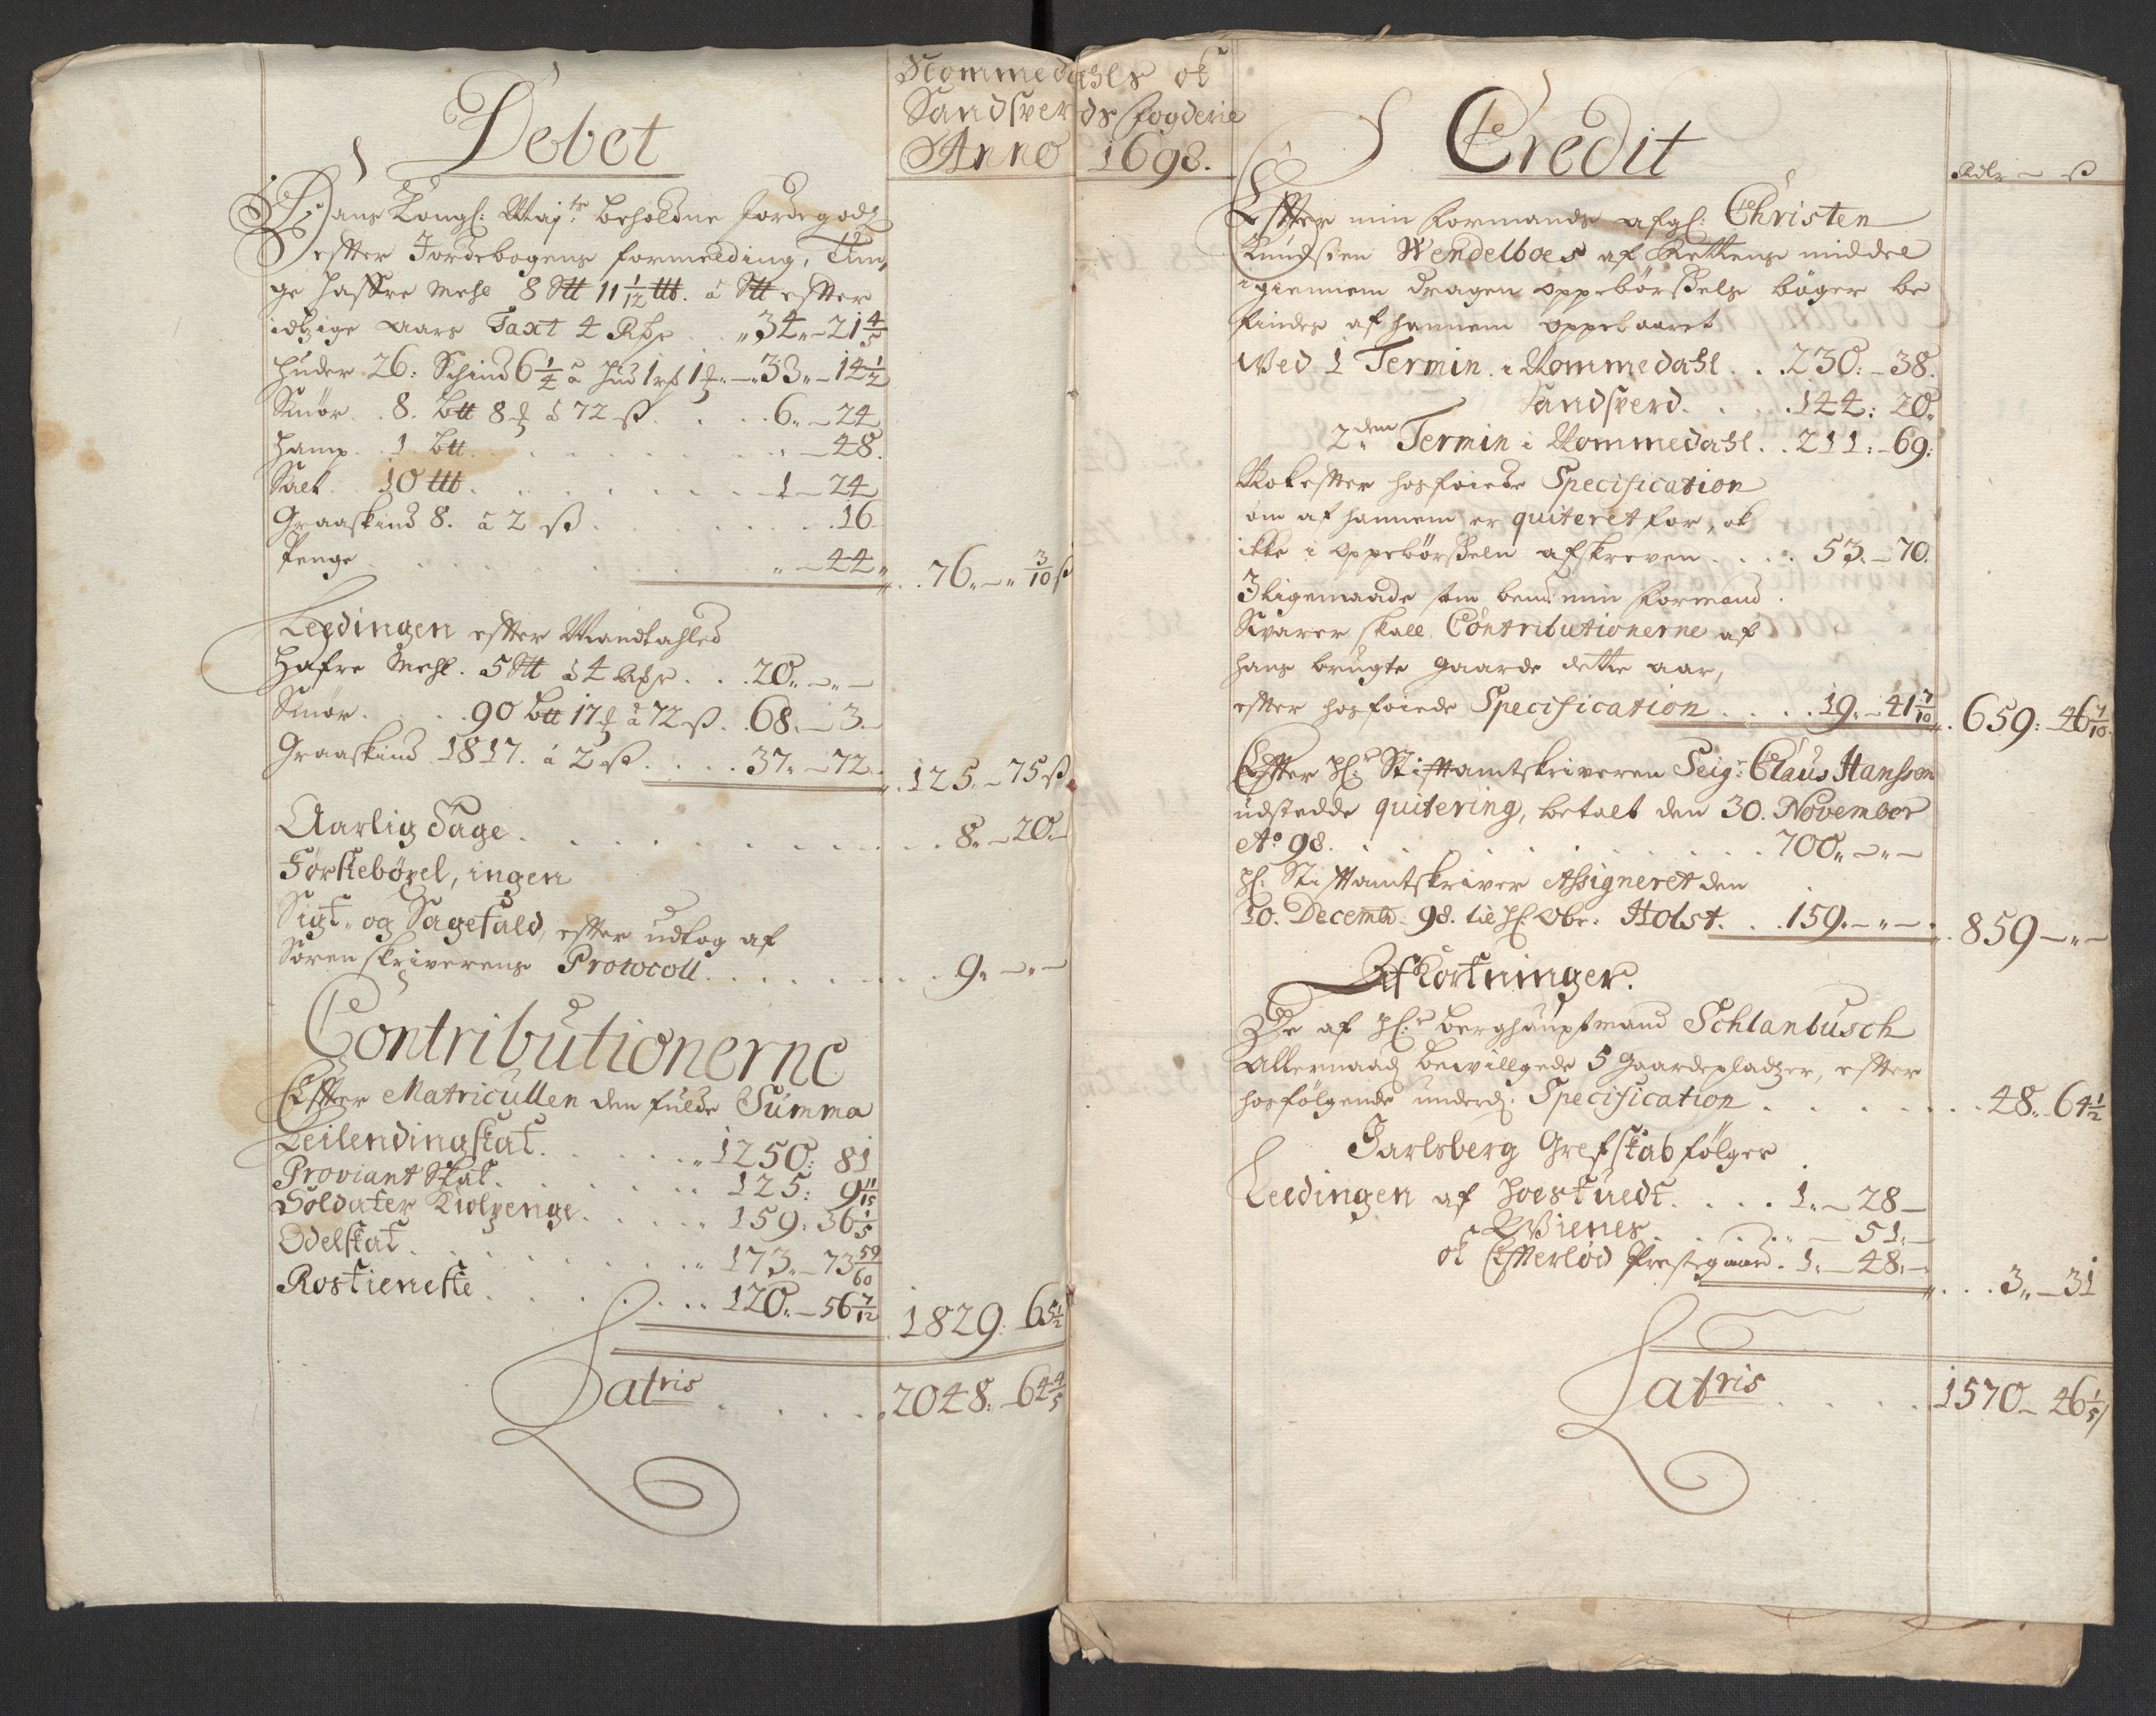 Debet
Nommedahls ok
Sandsverds fogderie
Anno 1698.
Hans Kongl: Maj:ts beholdne Jordegodz
effter Jordebogens formelding, Tun,
ge haffre mehl 8 Stt 11 1/12 ttt. á Stt effter
idtzige aars Taxt 4 Rdr . . 34„ – 21 4/5
huder 26: Schind 6 1/4 á hud 1 rß 1 ₰. – 33„ – 14 1/2
Smør . . 8. btt 8 ₰ á 72 ß . . . 6„ – 24
Hamp . . 1 btt . . . . . . „ – 48.
Salt . 10 ttt . . . . . . 1 – 24
Graaskind 8. á 2 ß . . . . . . 16
Penge . . . . . . „ – 44„ . . 76„ – „ 3/10 ß
Leedingen effter Mandtahled
Hafre Mehl. 5 Stt á 4 Rdr . . . 20„ – „ –
Smør . . . 90 btt 17 ₰ á 72 ß . . 68„ – 3 –
Graaskind 1817. á 2 ß . . . . 37„ – 72 . . 125 – 75 ß
Aarlig Tage . . . . . . . . 8„ – 20 –
Førstebøxel, ingen
Sigt- og Sagefald, effter udtog af
Sorenskriverens Protocoll . . . . . . . 9„ – „ –
Contributionerne
Effter Matricullen den fulde Summa
Leilendingskat . . . . . . „ 1250: 81
Proviant Skat . . . . . . „ 125: 9 11/15
Soldater Kiolpenge . . . . . „ 159: 36 1/5
Odelskat . . . . . . . „ 173„ – 73 59/60
Rostieneste . . . . . . „ 120„ – 56 7/12 1829: 65 1/2
Latris . . . . 2048: – 64 4/5
Credit
Rdlr – ß
Effter min formands afgl: Christen
Knudsen Wendelboes af Rettens middel
igiennem dragen oppebørsels bøger be
findes af hannem oppebaaret
Ved 1 Termin i Nommedahl . . 230: – 38.
Sandsverd . . . . 144: 20„
2den Termin i Nommedahl . . 211: – 69:
Nok effter hosføiede Specification
om af hannem er quiteret for, ok
ikke i oppebørseln afskreven . . . . 53. – 70.
Iligemaade som bem:te min formand
Svarer skall Contributionerne af
hans brugte gaarde dette aar,
effter hosføiede Specification . . . . 19„ – 41 7/10 . 659: 46 7/10
Effter Hl:r Stifftamtskriveren Seigr: Claus Hanssen
udstedde quitering, betalt den 30. November
Ao 98. . . . . . . . . . . 700„ – „ –
Hl: Stifftamtskriver Assigneret den
10. Decembr: 98. til Hl Obr: Holst . . . 159„ – „ – . 859 – „ –
Afkortninger.
De af Hl:r berghauptmand Schlanbusch
Allernaad: bevillgede 5 Gaardepladtzer, effter
hosfølgende underd: Specification . . . . . . . 48„ 64 1/2
Jarlsberg Grefskab følger
Leedingen af Hoestuedt . . . . 1„ – 28 –
Wienes . . . . „ – 51 –
ok Effterlød Prestegaard . 1„ – 48 – . . . 3„ – 31
Latris . . . . 1570 – 46 1/5